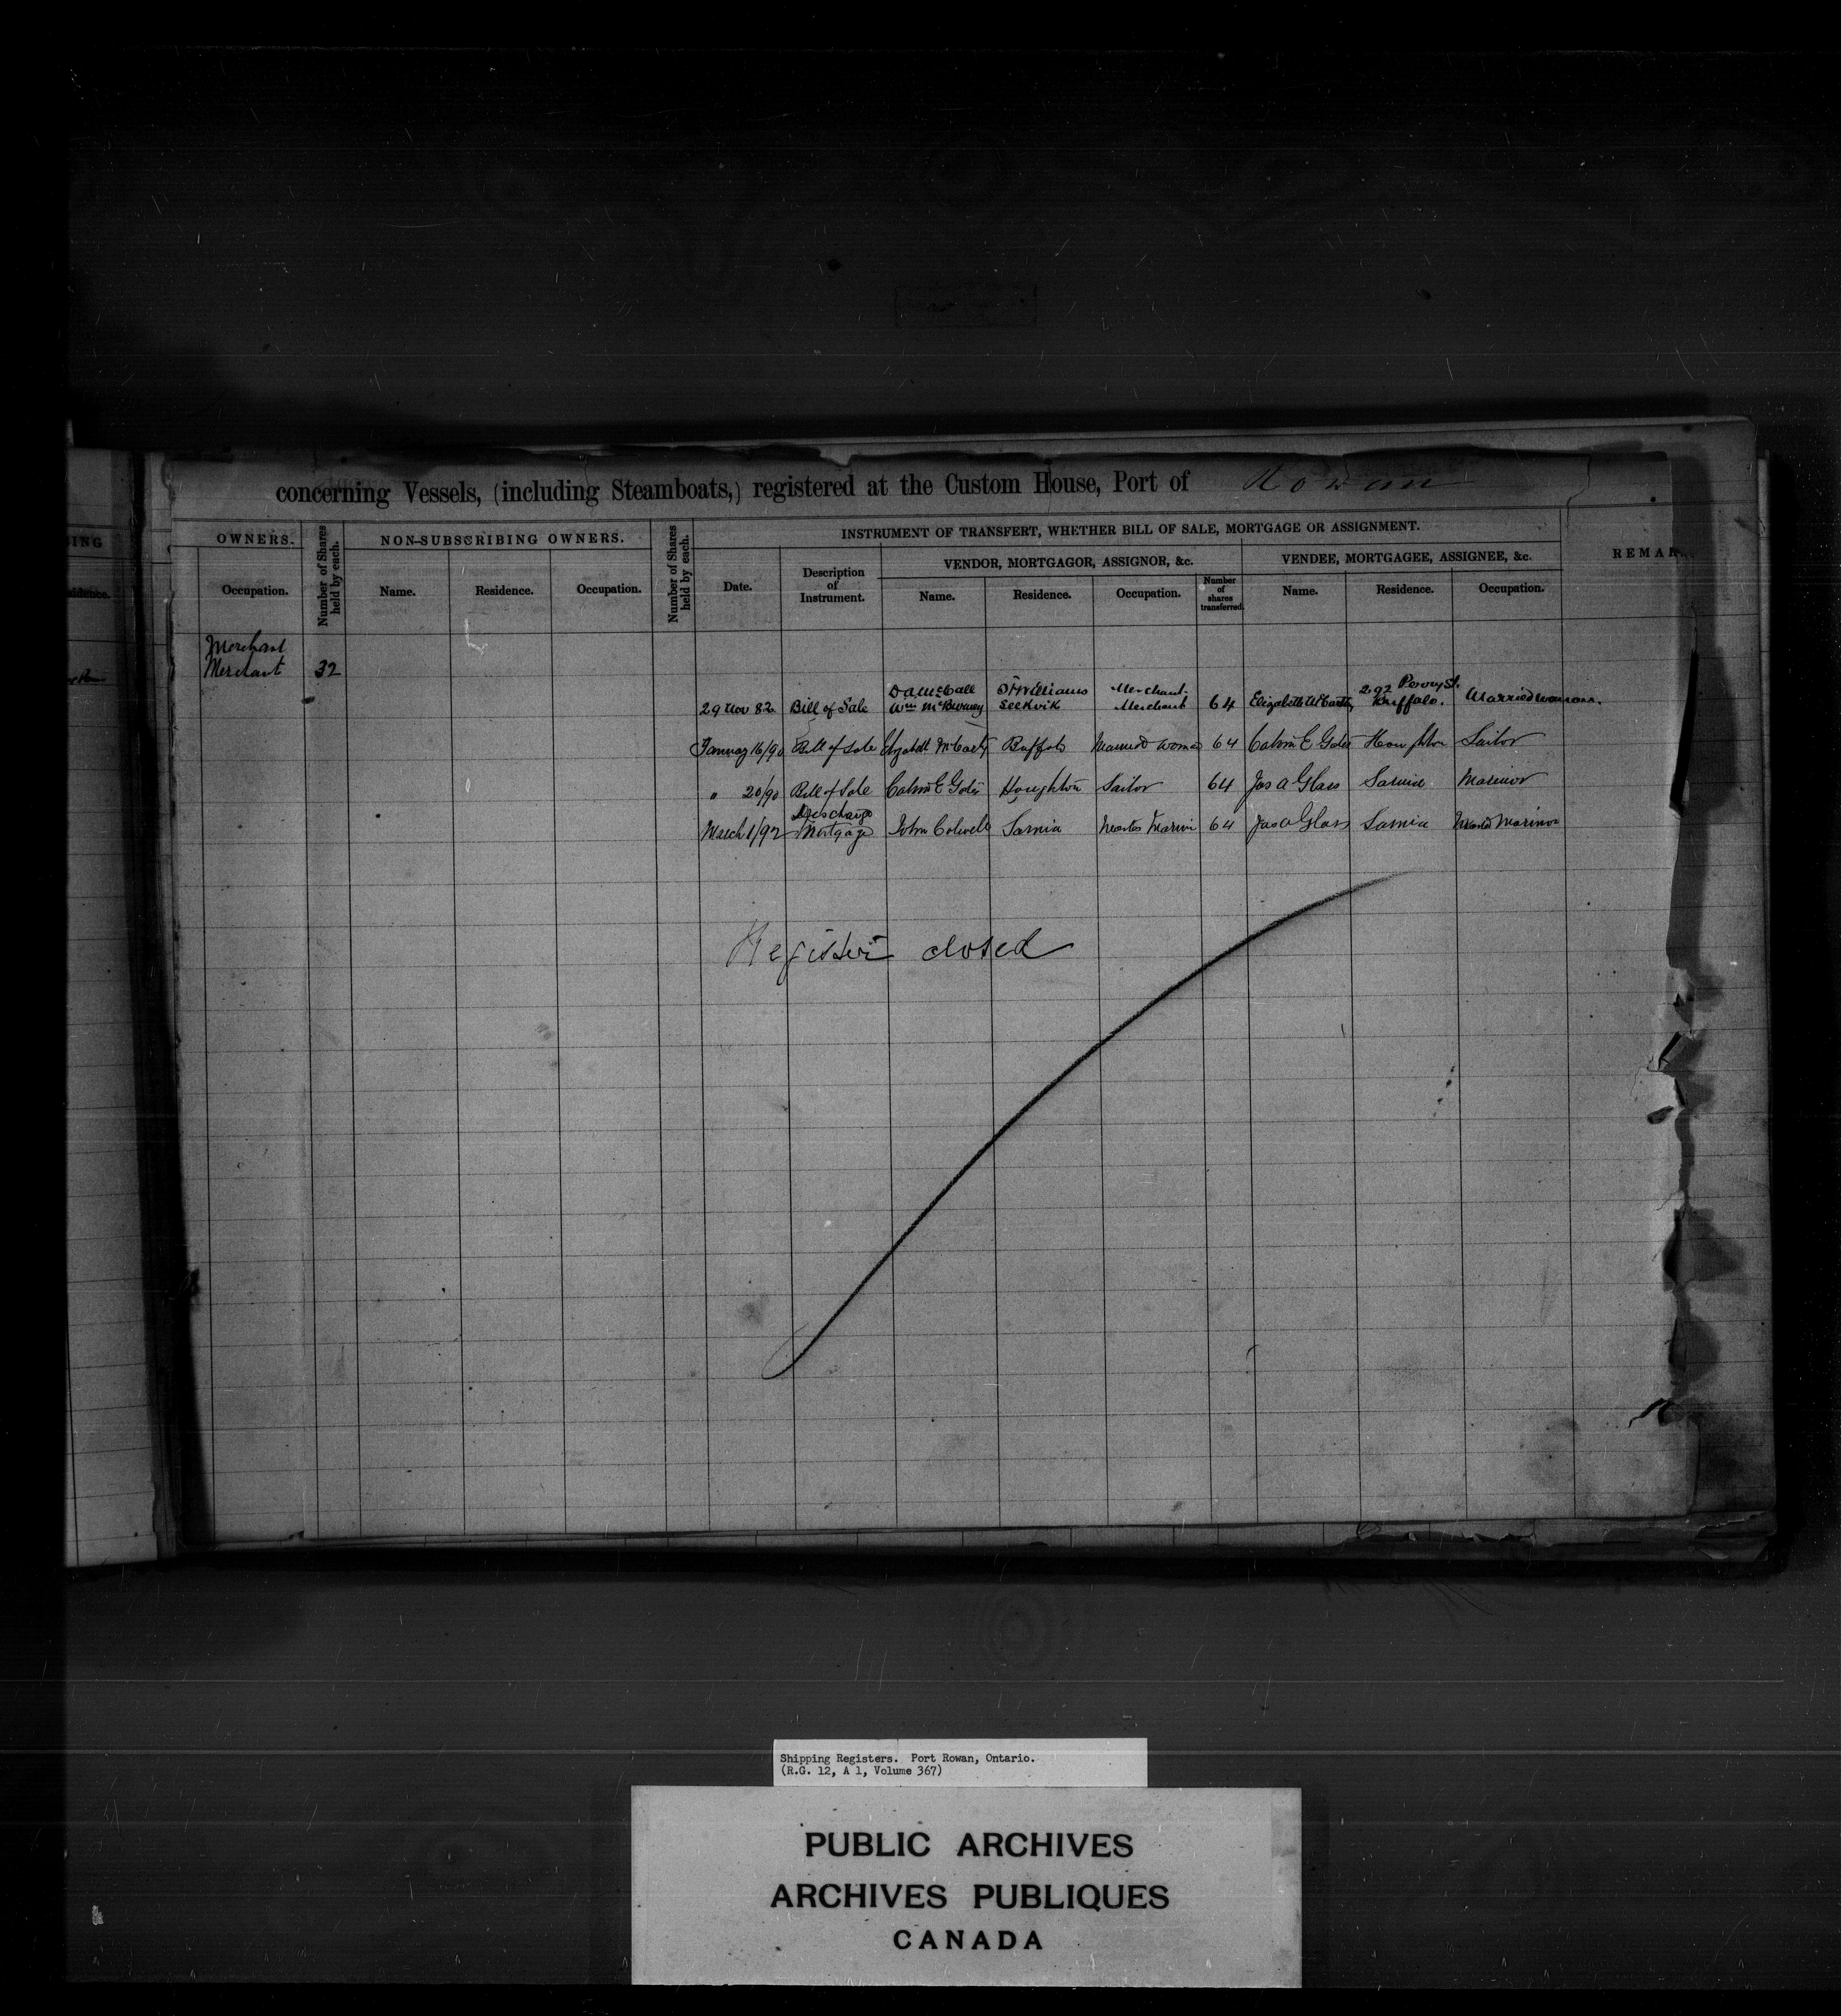 concerning Vessels, (including Steamboats,) registered at the Custom House, Port of Rowan
ING
OWNERS.
Number of Shares held by each.
NON-SUBSCRIBING OWNERS.
Number of Shares held by each.
INSTRUMENT OF TRANSFERT, WHETHER BILL OF SALE, MORTGAGE OR ASSIGNMENT.
REMAR
VENDOR, MORTGAGOR, ASSIGNOR, &c.
VENDEE, MORTGAGEE, ASSIGNEE, &c.
Occupation. Name. Residence. Occupation. Date. Description of Instrument. Name. Residence. Occupation. Number of shares transferred. Name. Residence. Occupation.
Merchant
Merchant 32
D A McCall St Williams Merchant 292 Perry St.
29 Nov 82 Bill of Sale Wm McBurney Merchant 64 Elizabeth McCarty Buffalo. Married woman.
January 16/90 Bill of Sale Elizabeth McCarty Buffalo Married Woman 64 Calvin E Houghton Sailor
" 20/90 Bill of Sale Calvin E Houghton Sailor 64 Jas A Glass Sarnia Mariner
Discharge
March 1/92 Mortgage John Colwell Sarnia Master Marin 64 Jas A Glass Sarnia Mariner
Register closed
Shipping Registers. Port Rowan, Ontario.
(R.G. 12, A 1, Volume 367)
PUBLIC ARCHIVES
ARCHIVES PUBLIQUES
CANADA